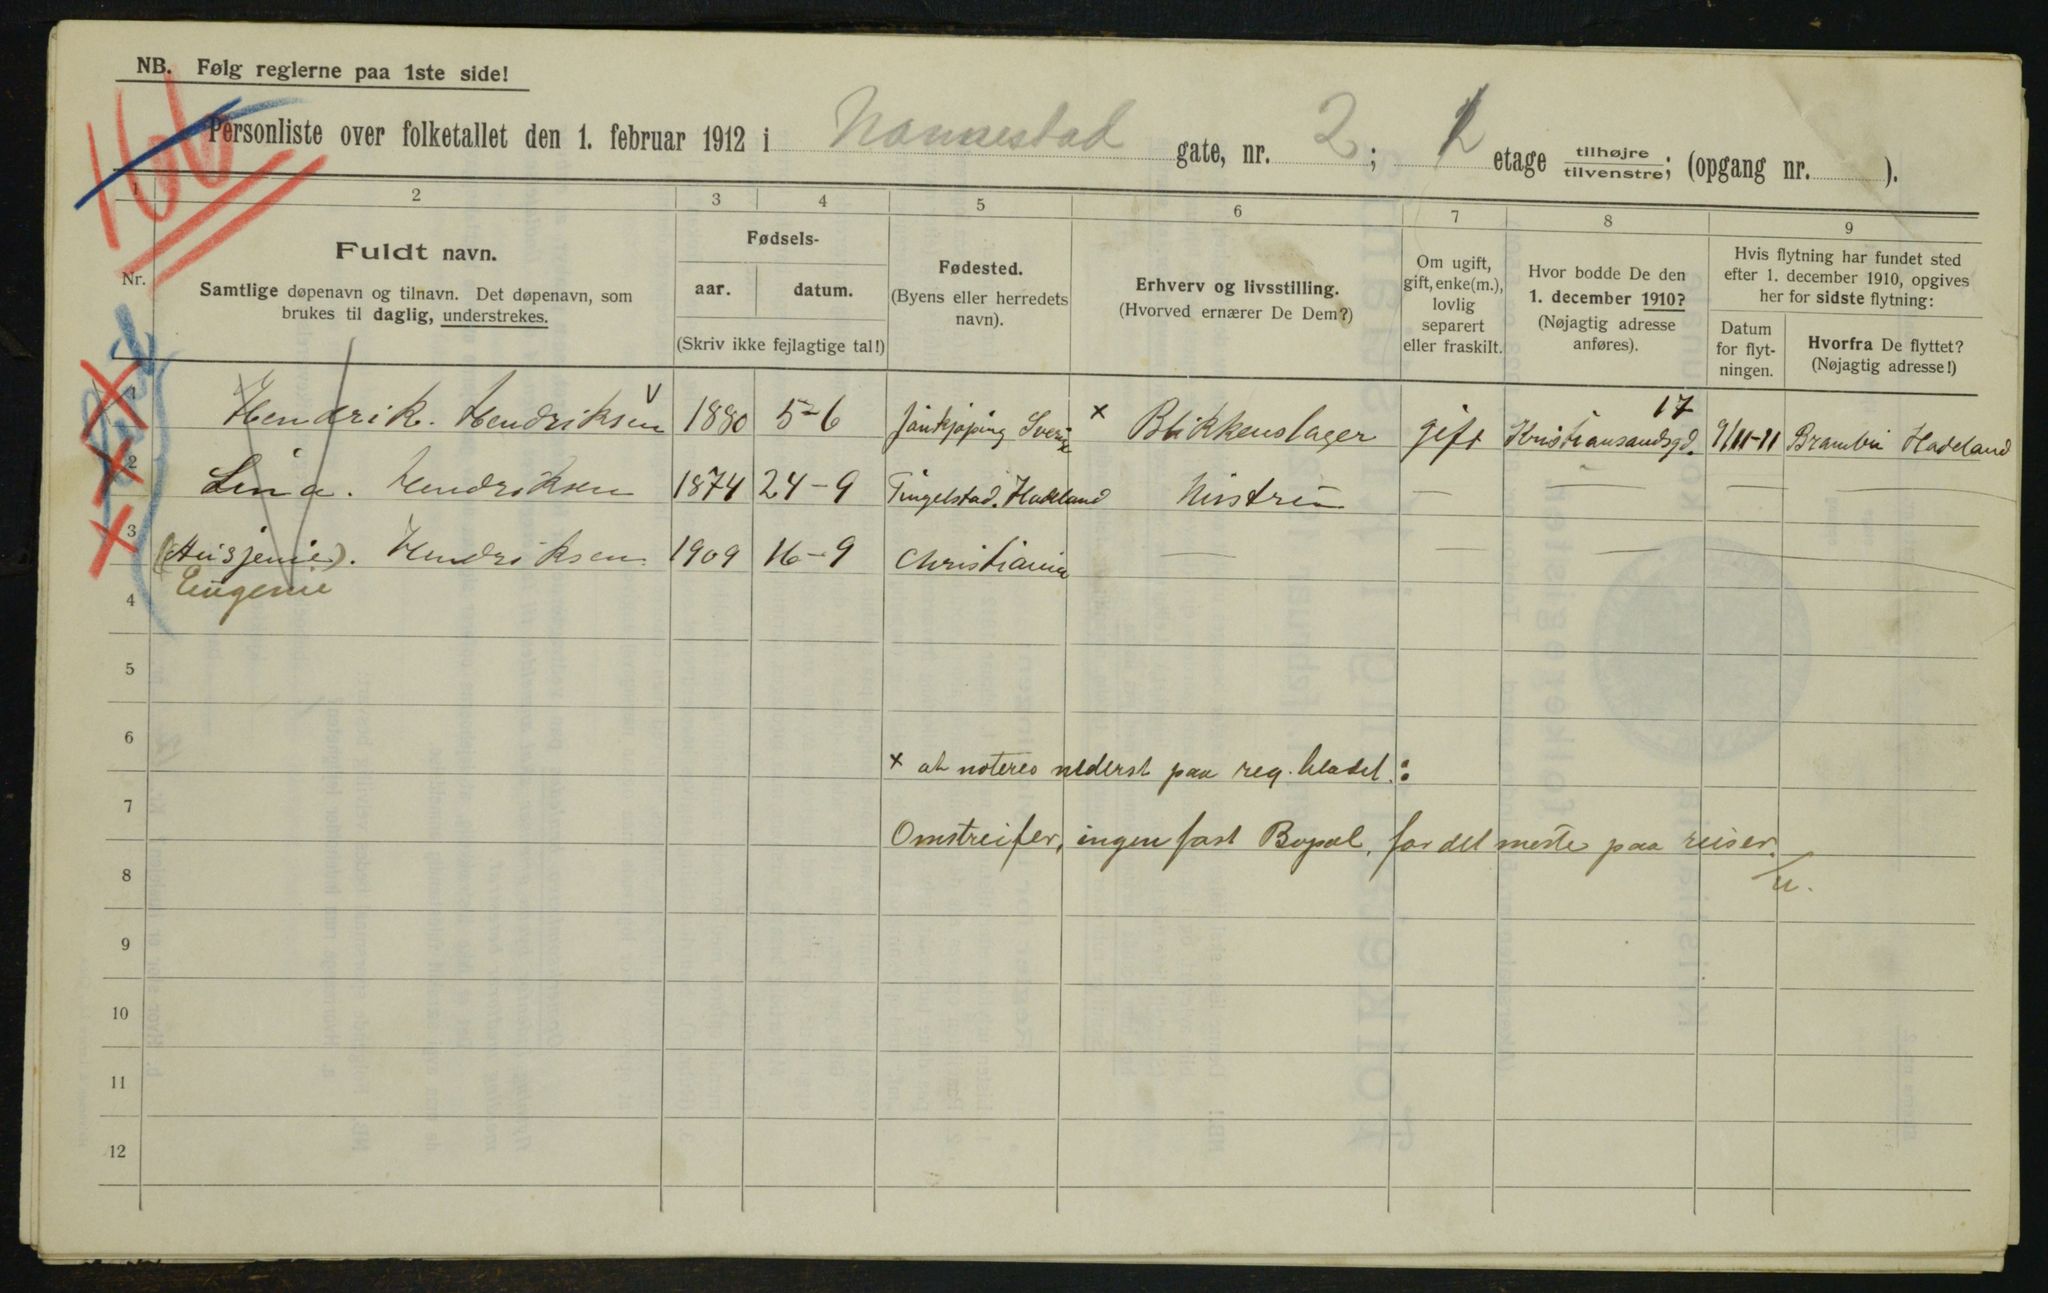 NB. Følg reglerne paa 1ste side!
166
Personliste over folketallet den 1. februar 1912 i Nannestad gate, nr. 2; 2 etage tilhøjre tilvenstre; (opgang nr. ).
1 2 3 4 5 6 7 8 9
Nr.
Fuldt navn.
Samtlige døpenavn og tilnavn. Det døpenavn, som
brukes til daglig, understrekes.
Fødsels-
aar. datum.
(Skriv ikke fejlagtige tal!)
Fødested.
(Byens eller herredets
navn).
Erhverv og livsstilling.
(Hvorved ernærer De Dem?)
Om ugift,
gift, enke(m.),
lovlig
separert
eller fraskilt.
Hvor bodde De den
1. december 1910?
(Nøjagtig adresse
anføres).
Hvis flytning har fundet sted
efter 1. december 1910, opgives
her for sidste flytning:
Datum
for flyt-
ningen.
Hvorfra De flyttet?
(Nøjagtig adresse!)
1 Hendrik. Hendriksen 1880 5-6 Jönkjøping Sverie × Blikkenslager gift Kristiansandsgd. 17 9/11-11 Hadeland
2 Lina. Hendriksen 1874 24-9 Tingelstad. Hadeland Hustru — — —
3 (Huisjenie). Hendriksen 1909 16-9 Christiania — — — —
4 Eugenie
5
6
× at noteres nederst paa reg. bladet:
7
Omstreifer, ingen fast Bopæl, for det meste paa reiser.
8
9
10
11
12